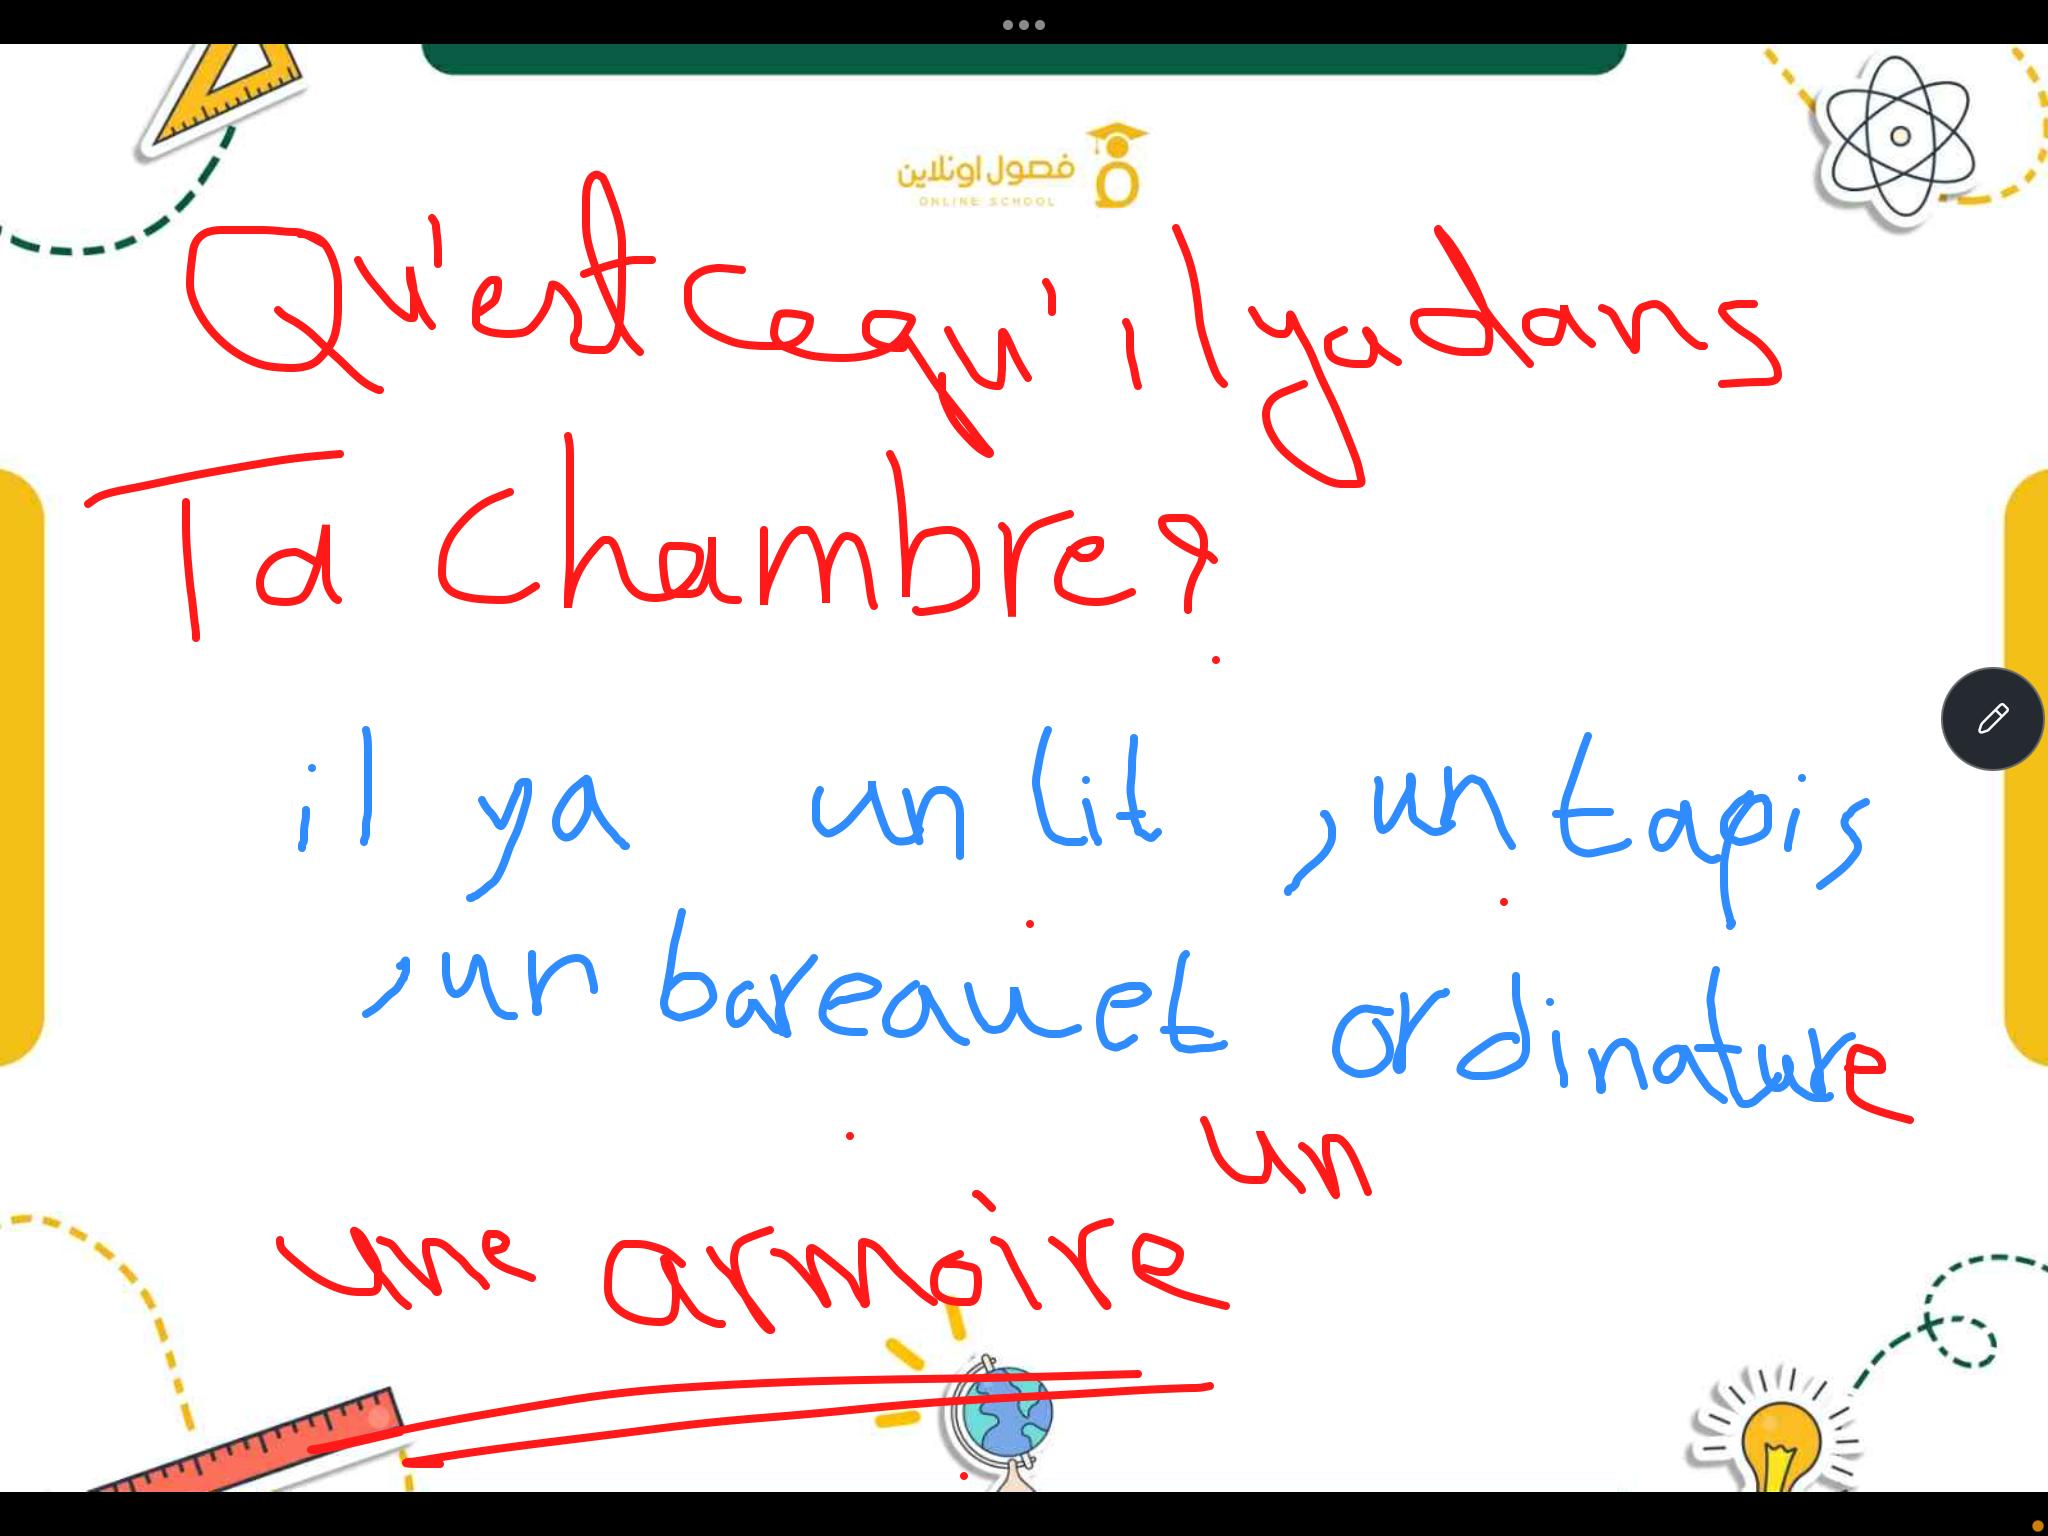 فصول اونلاين
ONLINE SCHOOL
Qu'est ce qu'il ya dans
Ta chambre?
il ya un lit , un tapis
, un bareau et ordinature
un
une armoire